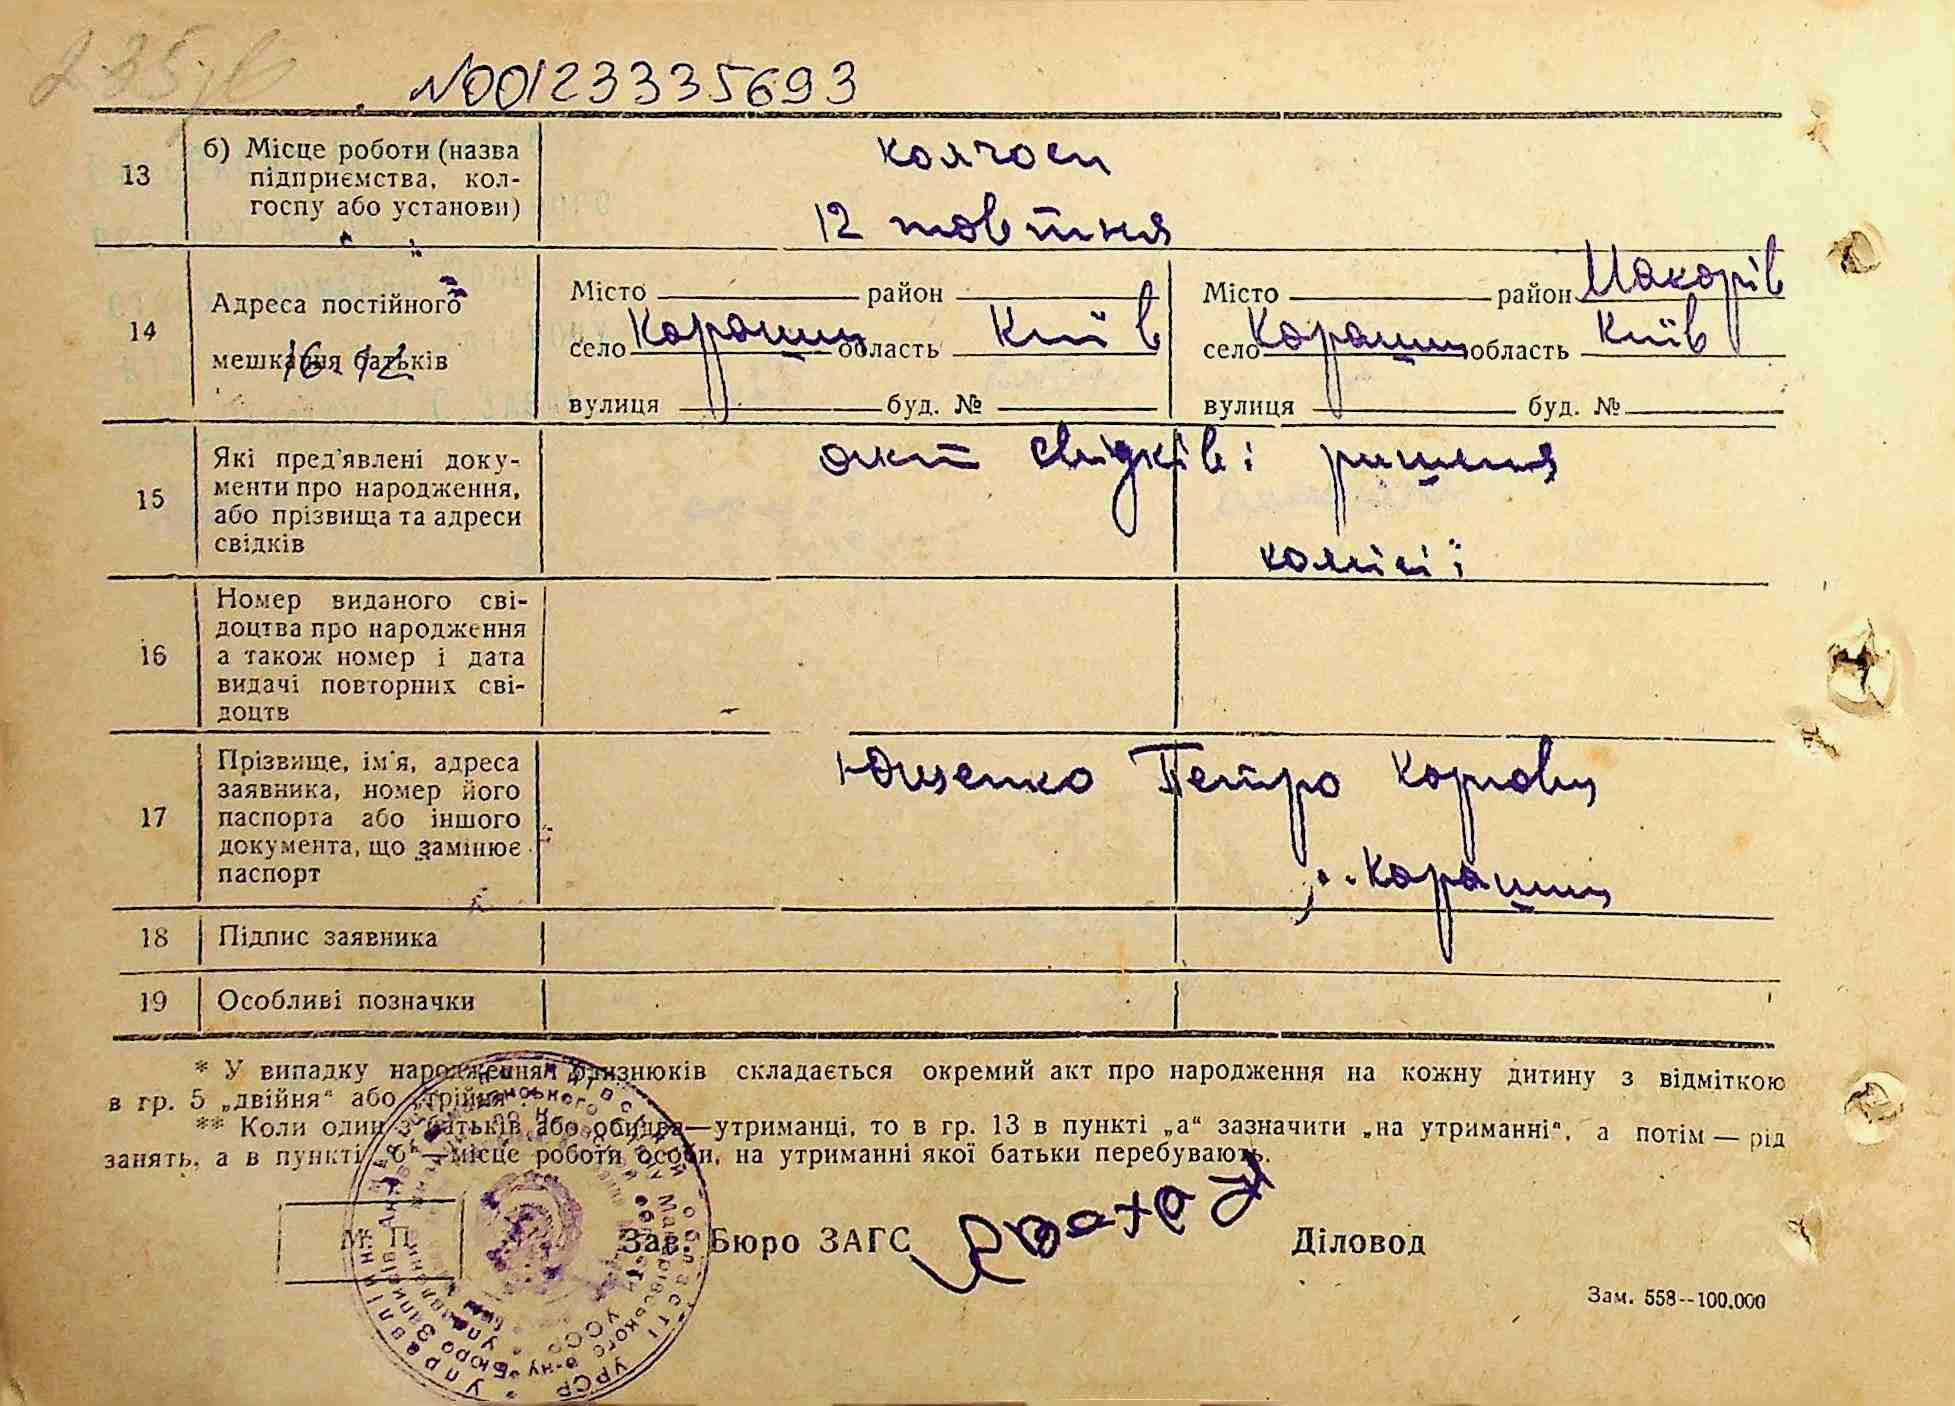 №00123335693
13
б) Місце роботи (назва
підприємства, кол-
госпу або установи)
колгосп
12 жовтня
14
Адреса постійного
мешкання батьків
16-12
Місто район
село Корашин область Київ
вулиця буд. №
Місто район Макарів
село Корашин область Київ
вулиця буд. №
15
Які пред'явлені доку-
менти про народження,
або прізвища та адреси
свідків
акт свідків і рішення
комісії
16
Номер виданого сві-
доцтва про народження
а також номер і дата
видачі повторних сві-
доцтв
17
Прізвище, ім'я, адреса
заявника, номер його
паспорта або іншого
документа, що замінює
паспорт
Ющенко Петро Карпович
с. Корашин
18
Підпис заявника
19
Особливі позначки
* У випадку народження близнюків складається окремий акт про народження на кожну дитину з відміткою
в гр. 5 „двійня“ або „трійня“.
** Коли один з батьків або обидва—утриманці, то в гр. 13 в пункті „а“ зазначити „на утриманні“, а потім — рід
занять, а в пункті „б“—місце роботи особи, на утриманні якої батьки перебувають.
М. П.
Зав. Бюро ЗАГС
Діловод
Зам. 558--100.000